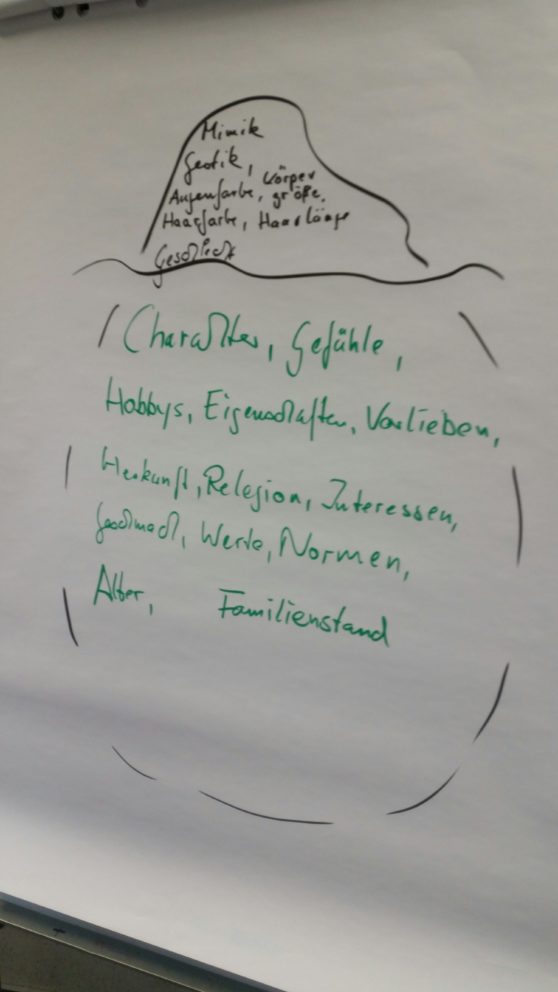 Mimik
Gestik, Körper
Augenfarbe, größe,
Haarfarbe, Haarlänge
Geschlecht
Charakter, Gefühle,
Hobbys, Eigenschaften, Vorlieben,
Herkunft, Relegion, Interessen,
Geschmack, Werte, Normen,
Alter, Familienstand